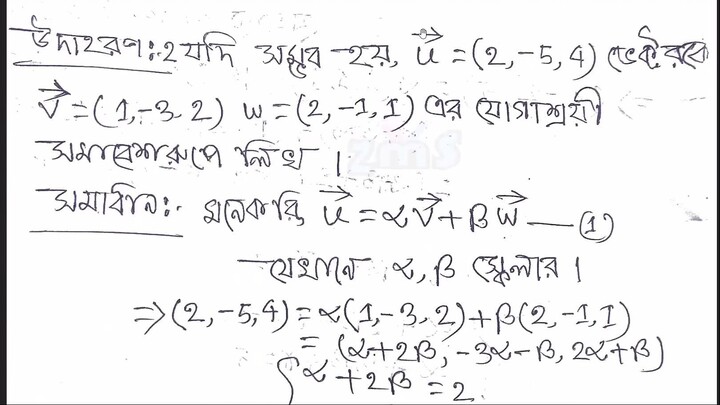 উদাহরণ:-২ যদি সম্ভব হয়, u⃗ = (2, -5, 4) ভেক্টরকে
v⃗ = (1, -3, 2) w = (2, -1, 1) এর যোগাশ্রয়ী
সমাবেশরূপে লিখ।
সমাধান:- মনেকরি, u⃗ = αv⃗ + βw⃗ — (1)
যেখানে α, β স্কেলার।
⇒ (2, -5, 4) = α(1, -3, 2) + β(2, -1, 1)
= (α+2β, -3α-β, 2α+β)
{ α + 2β = 2